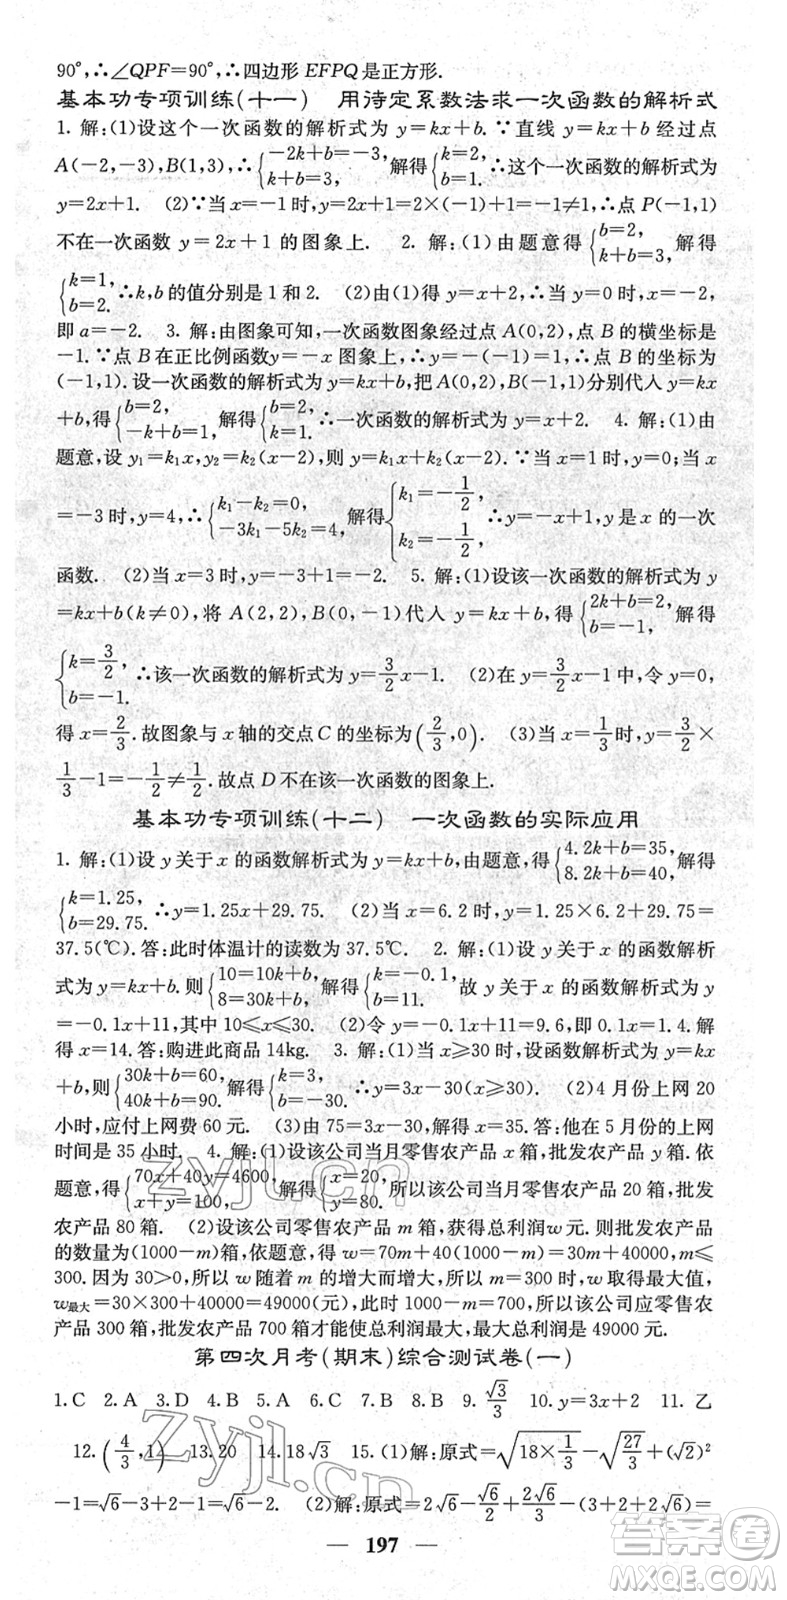 90°,∴∠QPF=90°,∴四边形 EFPQ 是正方形.
基本功专项训练(十一)　用待定系数法求一次函数的解析式
1. 解:(1)设这个一次函数的解析式为 y=kx+b.∵直线 kx+b 经过点
A(-2,-3),B(1,3),∴{-2k+b=-3, k+b=3, 解得{k=2, b=1. ∴这个一次函数的解析式为
y=2x+1.　(2)∵当 x=-1 时,y=2x+1=2×(-1)+1=-1≠1,∴点 P(-1,1)
不在一次函数 y=2x+1 的图象上.　2. 解:(1)由题意得{b=2, k+b=3, 解得
{k=1, b=2. ∴k,b 的值分别是 1 和 2.　(2)由(1)得 y=x+2,∴当 y=0 时,x=-2,
即 a=-2.　3. 解:由图象可知,一次函数图象经过点 A(0,2),点 B 的横坐标是
-1.∵点 B 在正比例函数y=-x 图象上,∴y=-(-1)=1,∴点 B 的坐标为
(-1,1).设一次函数的解析式为 y=kx+b,把 A(0,2),B(-1,1)分别代人 y=kx
+b,得{b=2, -k+b=1, 解得{b=2, k=1. ∴一次函数的解析式为 y=x+2.　4. 解:(1)由
题意,设 y₁=k₁x,y₂=k₂(x-2),则 y=k₁x+k₂(x-2).∵当 x=1 时,y=0;当 x
=-3 时,y=4,∴{k₁-k₂=0, -3k₁-5k₂=4, 解得{k₁=-1/2, k₂=-1/2, ∴y=-x+1,y 是 x 的一次
函数.　(2)当 x=3 时,y=-3+1=-2.　5. 解:(1)设该一次函数的解析式为 y
=kx+b(k≠0),将 A(2,2),B(0,-1)代人 y=kx+b,得{2k+b=2, b=-1, 解得
{k=3/2, b=-1. ∴该一次函数的解析式为 y=3/2x-1.　(2)在 y=3/2x-1 中,令 y=0,
得 x=2/3.故图象与 x 轴的交点 C 的坐标为(2/3,0).　(3)当 x=1/3时,y=3/2×
1/3-1=-1/2≠1/2.故点 D 不在该一次函数的图象上.
基本功专项训练(十二)　一次函数的实际应用
1. 解:(1)设 y 关于 x 的函数解析式为 y=kx+b,由题意,得{4.2k+b=35, 8.2k+b=40, 解得
{k=1.25, b=29.75. ∴y=1.25x+29.75.　(2)当 x=6.2 时,y=1.25×6.2+29.75=
37.5(℃).答:此时体温计的读数为 37.5℃.　2. 解:(1)设 y 关于 x 的函数解析
式为 y=kx+b.则{10=10k+b, 8=30k+b, 解得{k=-0.1, b=11. 故 y 关于 x 的函数解析式为 y
=-0.1x+11,其中 10≤x≤30.　(2)令 y=-0.1x+11=9.6,即 0.1x=1.4.解
得 x=14.答:购进此商品 14kg.　3. 解:(1)当 x≥30 时,设函数解析式为 y=kx
+b,则{30k+b=60, 40k+b=90. 解得{k=3, b=-30. ∴y=3x-30(x≥30).　(2)4 月份上网 20
小时,应付上网费 60 元.　(3)由 75=3x-30,解得 x=35.答:他在 5 月份的上网
时间是 35 小时.　4. 解:(1)设该公司当月零售农产品 x 箱,批发农产品 y 箱.依
题意,得{70x+40y=4600, x+y=100, 解得{x=20, y=80. 所以该公司当月零售农产品 20 箱,批发
农产品 80 箱.　(2)设该公司零售农产品 m 箱,获得总利润w 元.则批发农产品
的数量为(1000-m)箱,依题意,得 w=70m+40(1000-m)=30m+40000,m≤
300.因为 30>0,所以 w 随着 m 的增大而增大,所以 m=300 时,w 取得最大值,
w最大=30×300+40000=49000(元),此时 1000-m=700.所以该公司应零售农
产品 300 箱,批发农产品 700 箱才能使总利润最大,最大总利润是 49000 元.
第四次月考(期末)综合测试卷(一)
1.C　2.A　3.D　4.B　5.D　6.D　7.C　8.B　9.√3/3　10.y=3x+2　11.乙
12.(4/3,1)　13.20　14.18√3　15.(1)解:原式=√(18×1/3)-√27/3+(√2)²
-1=√6-3+2-1=√6-2.　(2)解:原式=2√6-√6/2+2√6/3-(3+2+2√6)=
— 197 —
zyjl.cn
zyjl.cn
答案圈
MXQE.COM